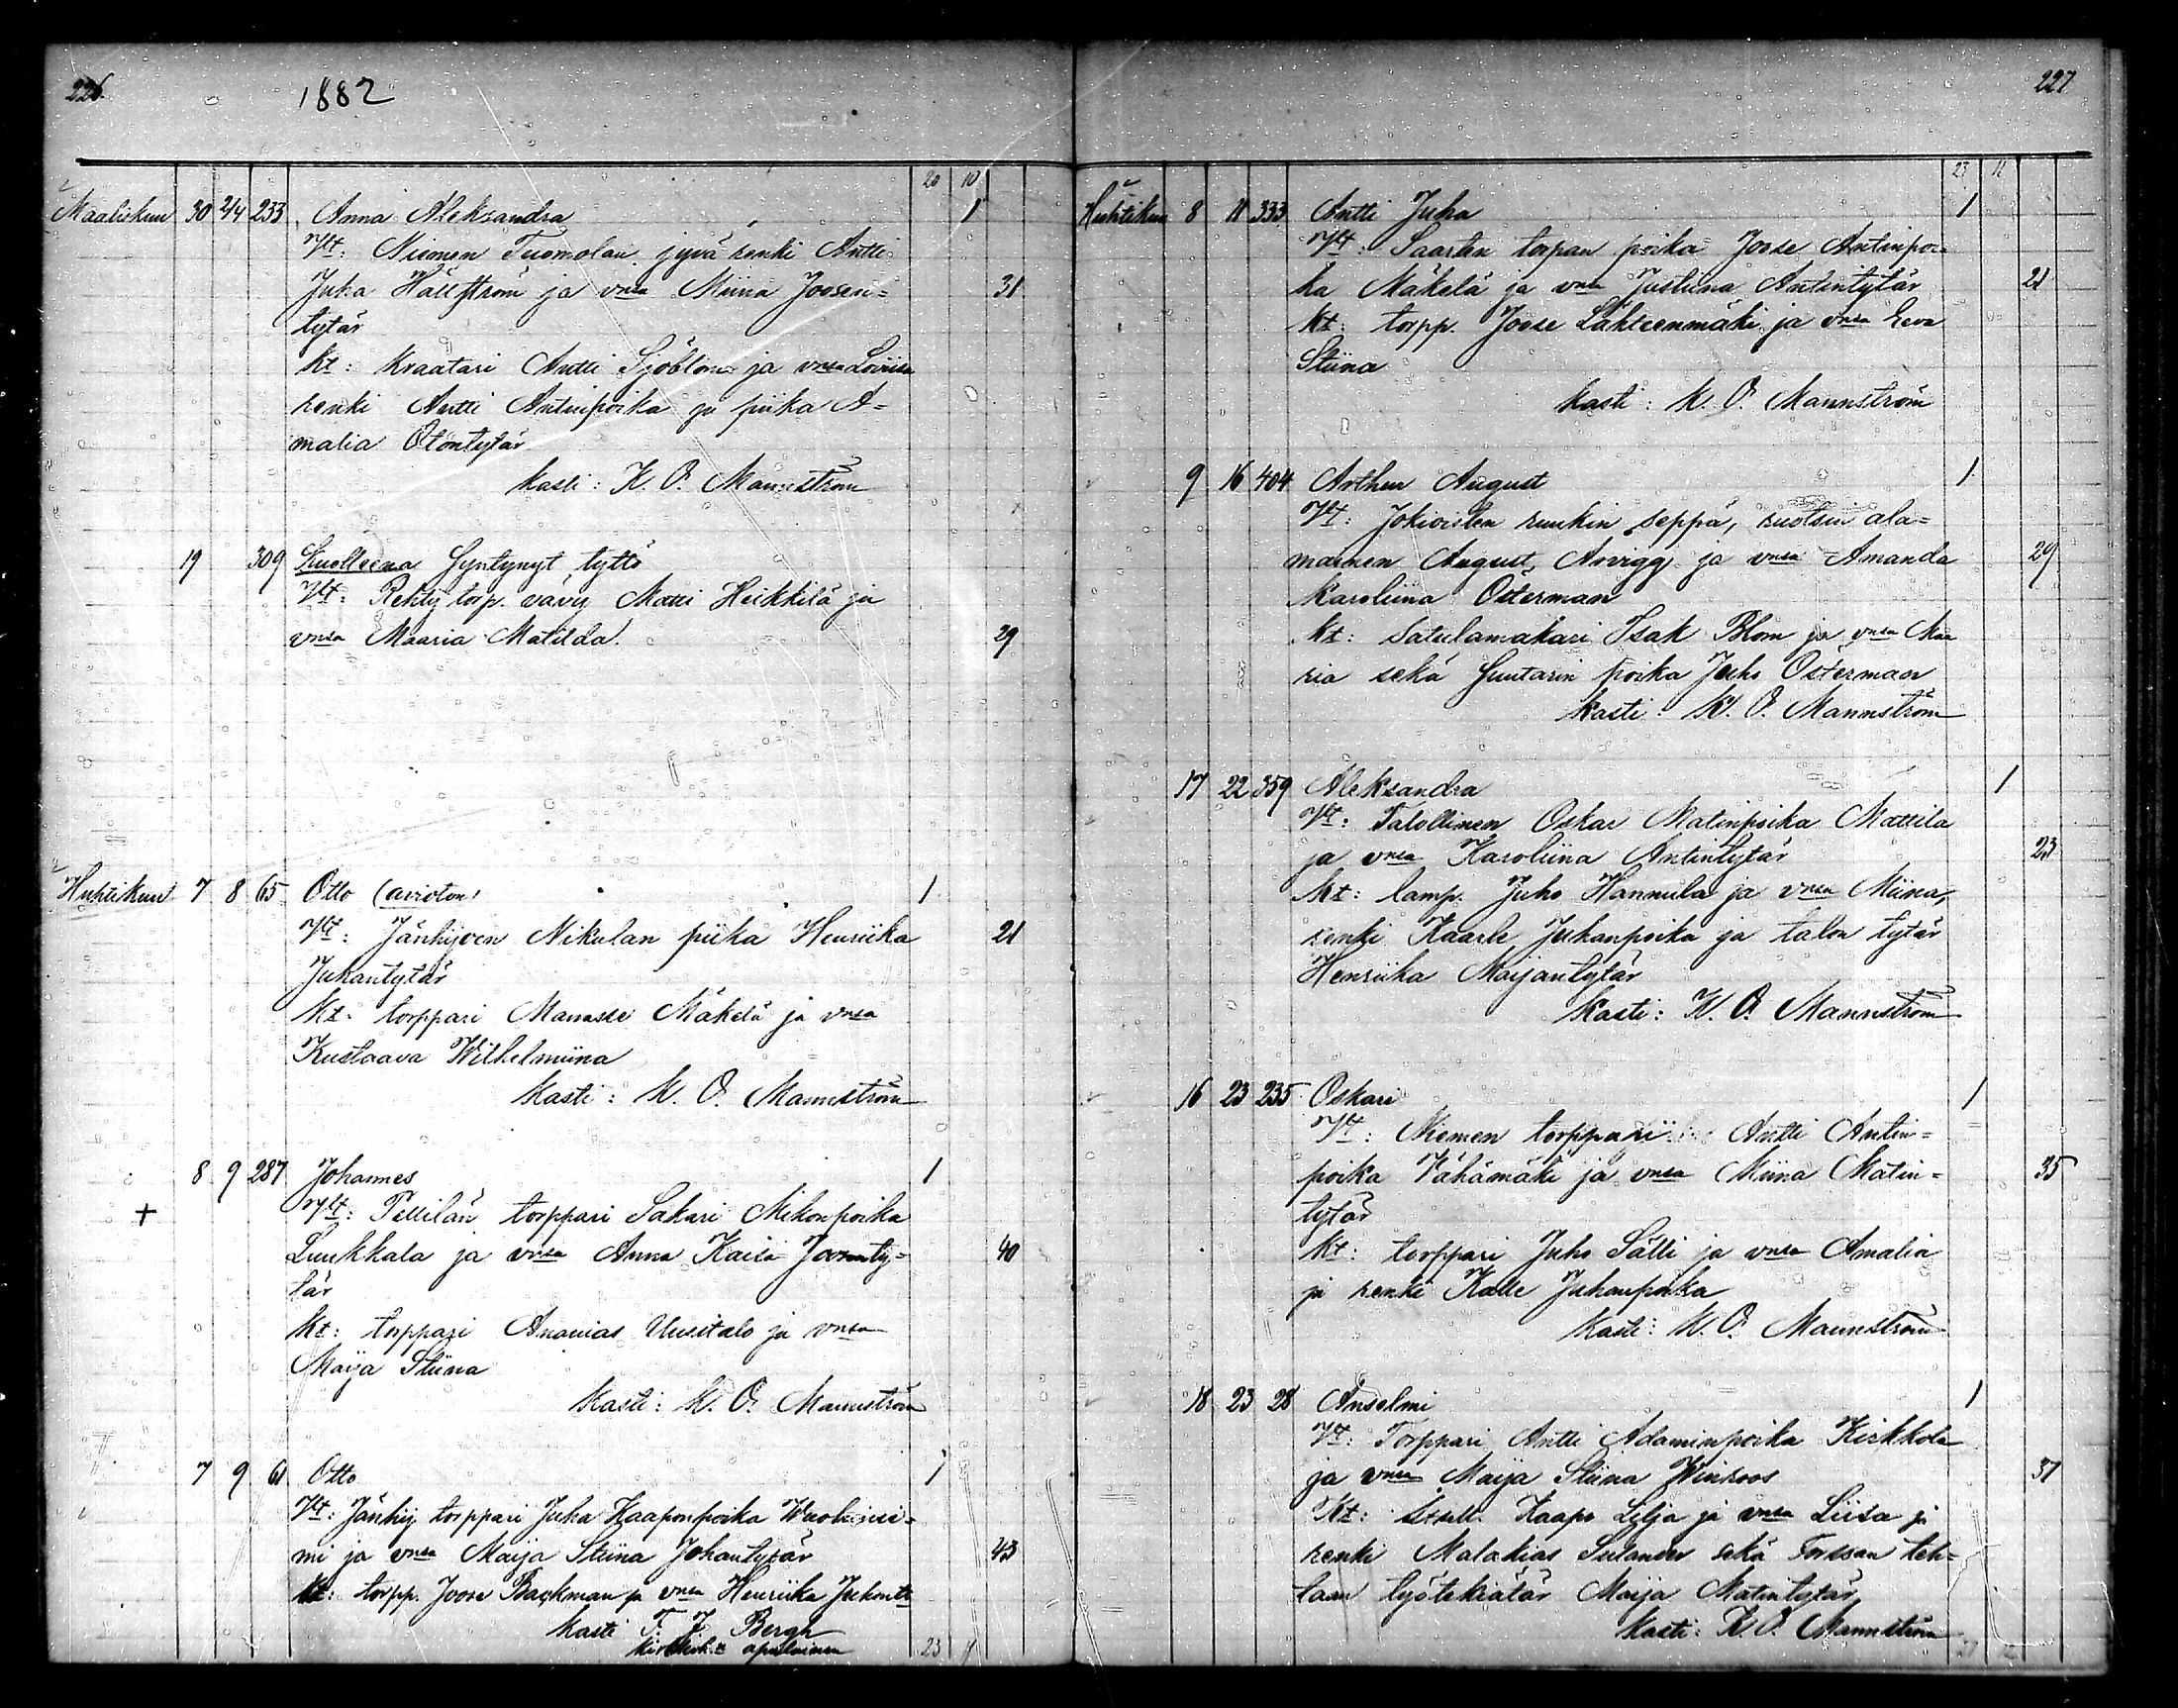 226.
1882
20 10
Maaliskuu 30 2/4 233 Anna Aleksandra 1
Vt: Niemen Tuomolan jyvä renki Antti
Juha Hällström ja vnsa Miina Joosen= 31
tytär
Kt: Kraatari Antti Sjöblom ja vnsa Loviisa
renki Antti Antinpoika ja piika A=
malia Otontytär
Kasti: K. O. Mannström
19 309 Kuolleena Syntynyt tyttö
Vt: Rehtij torp. vävy Matti Heikkilä ja
vnsa Maaria Matilda. 29
Huhtikuu 7 8 65 Otto (avioton) 1
Vt: Jänhijoen Nikulan piika Henriika 21
Juhantytär
Kt: torppari Manasse Mäkelä ja vnsa
Kustaava Wilhelmiina
Kasti: K. O. Mannström
8 9 287 Johannes 1
+ Vt: Pellilän torppari Sakari Mikonpoika
Luukkala ja vnsa Anna Kaisa Joosenty= 40
tär
Kt: torppari Ananias Uusitalo ja vnsa
Maija Stiina
Kasti: K. O. Mannström
7 9 61 Otto 1
Vt: Jänhij torppari Juha Kaaponpoika
mi ja vnsa Maija Stiina Johantytär 43
Kt: torpp. Joose Backman ja vnsa Henriika
Kasti F. J. Bergh
apulainen 23
227
23 11
Huhtikuu 8 11 333 Antti Juha 1
Vt: Saarten torpan poika Joose Antinpoi=
ka Mäkelä ja vnsa Justiina Antintytär 21
Kt: torpp. Joose Lähteenmäki ja vnsa Eeva
Stiina
Kasti: K. O. Mannström
9 16 404 Arthur August 1
Vt: Jokioisten ruukin seppä, ruotsin ala=
mainen August Arvigg ja vnsa Amanda 29
Karoliina Österman
Kt: Satulamakari Isak Blom ja vnsa Maa
ria sekä Suutarin poika Juho Österman
Kasti: K. O. Mannström
17 22 359 Aleksandra 1
Vt: Talollinen Oskar Matinpoika Mattila
ja vnsa Karoliina Antintytär 23
Kt: lamp. Juho Hannula ja vnsa Miina,
renki Kaarle Juhanpoika ja talon tytär
Henriika Maijantytär
Kasti: K. O. Mannström
16 23 235 Oskari 1
Vt: Niemen torppari Antti Antin=
poika Vähämäki ja vnsa Miina Matin= 35
tytär
Kt: torppari Juho Sälli ja vnsa Amalia
ja renki Kalle Juhanpoika
Kasti: K. O. Mannström
18 23 28 Anselmi 1
Vt: Torppari Antti Adaminpoika Kirkkola
ja vnsa Maija Stiina Winroos 37
Kt: Kaapo Lilja ja vnsa Liisa ja
renki Malakias Sulander sekä Forssan teh=
taan työtekiätär Maija Matintytär
Kasti: K. O. Mannström